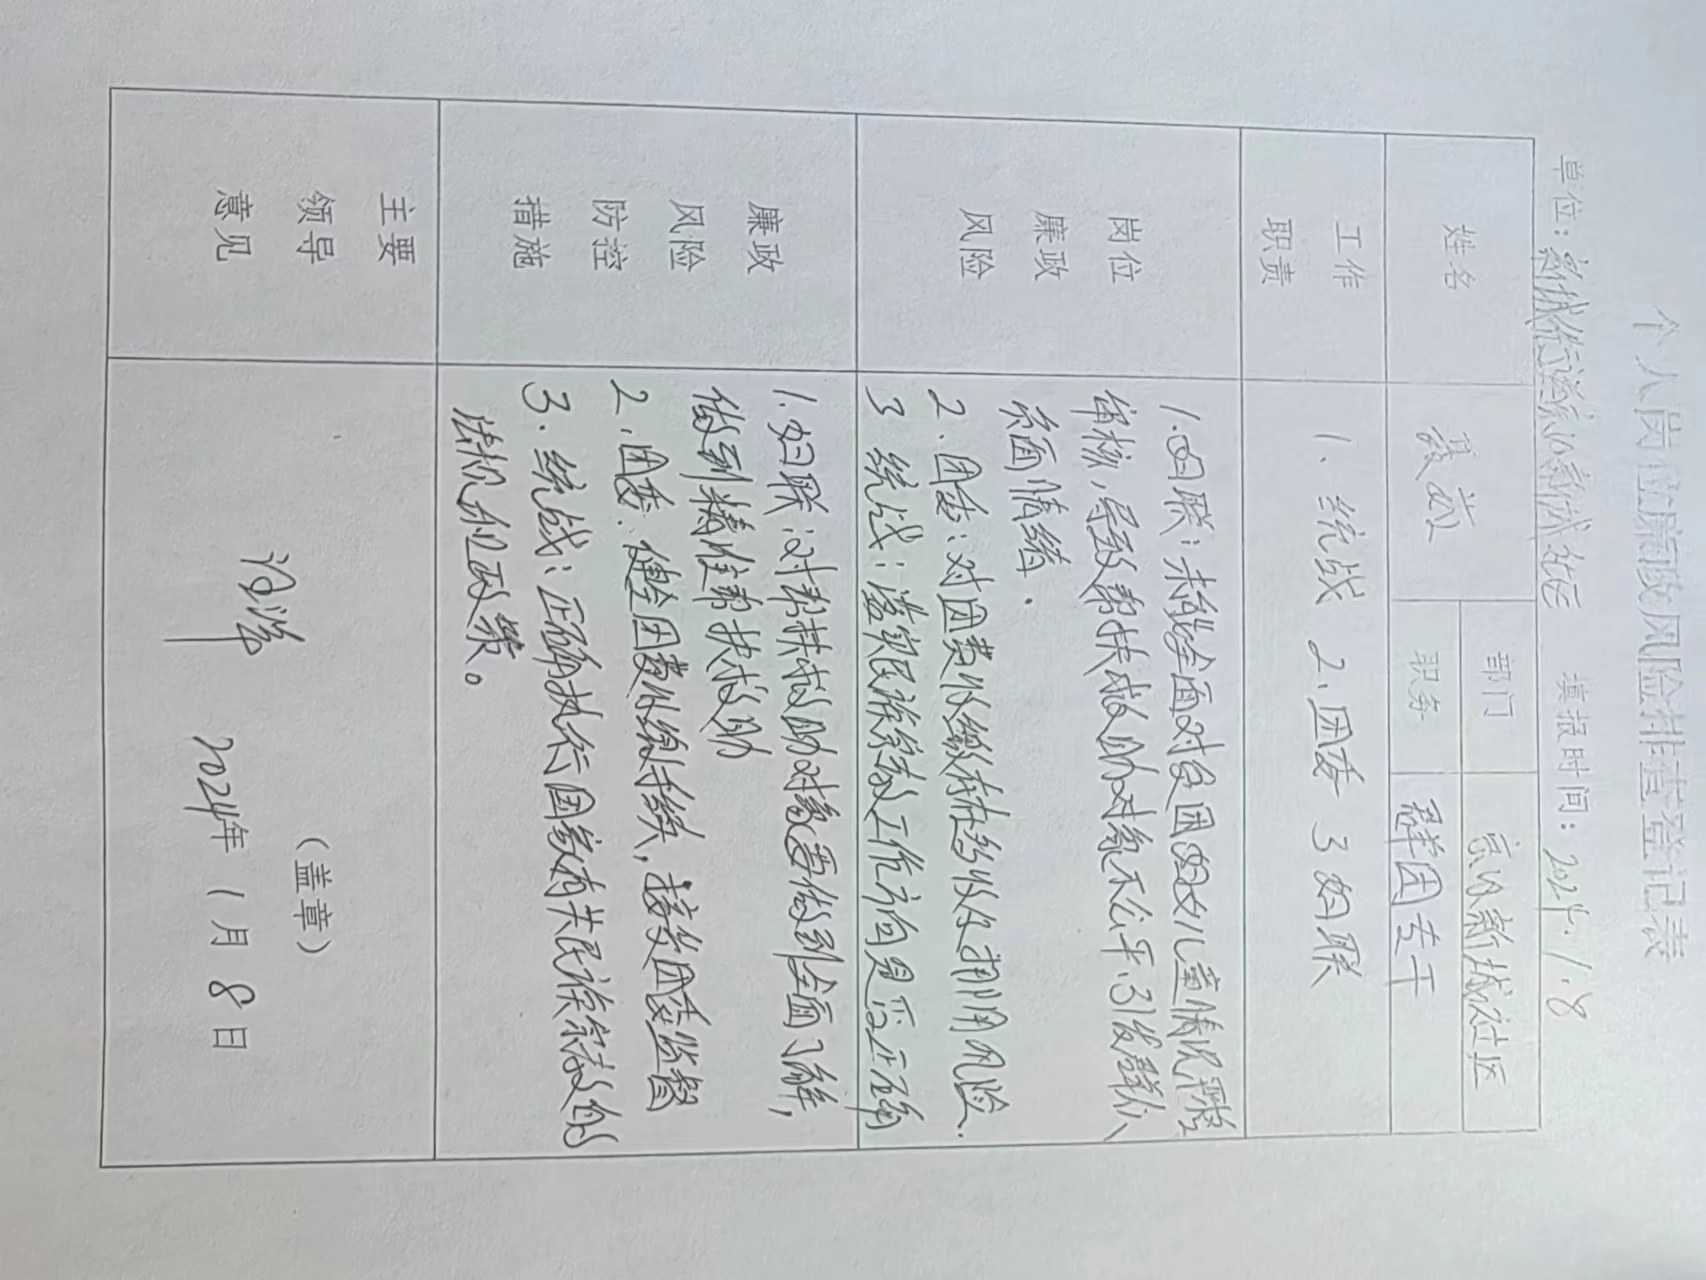 个人岗位廉政风险排查登记表
单位：新城街道 新城社区 填报时间：2024.1.8
姓名 聂 部门 新城社区
职务 群团专干
工作
职责
1. 统战 2.团委 3 妇联
岗位
廉政
风险
1.妇联：未能全面对贫困妇女儿童情况严格
审核，导致帮扶救助对象不公平、引发群众
负面情绪.
2.团委：对团费收缴存在少收及挪用风险.
3 统战：落实民族宗教工作方向是否正确
廉政
风险
防控
措施
1.妇联：对帮扶救助对象要做到全面了解，
做到精准帮扶救助
2.团委：健全团费收缴手续，接受团委监督
3.统战：正确执行国家有关民族宗教的
法规和政策。
主要
领导
意见
（盖章）
2024年 1月 8日